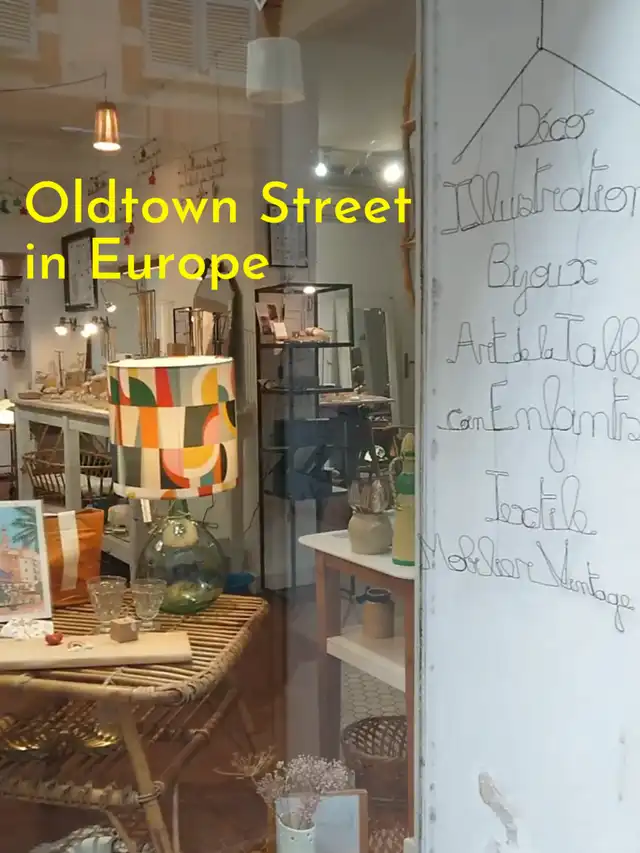 Oldtown Street
in Europe
Déco
Illustration
Byoux
Art de la Table
Enfants
Textile
Mobilier Vintage